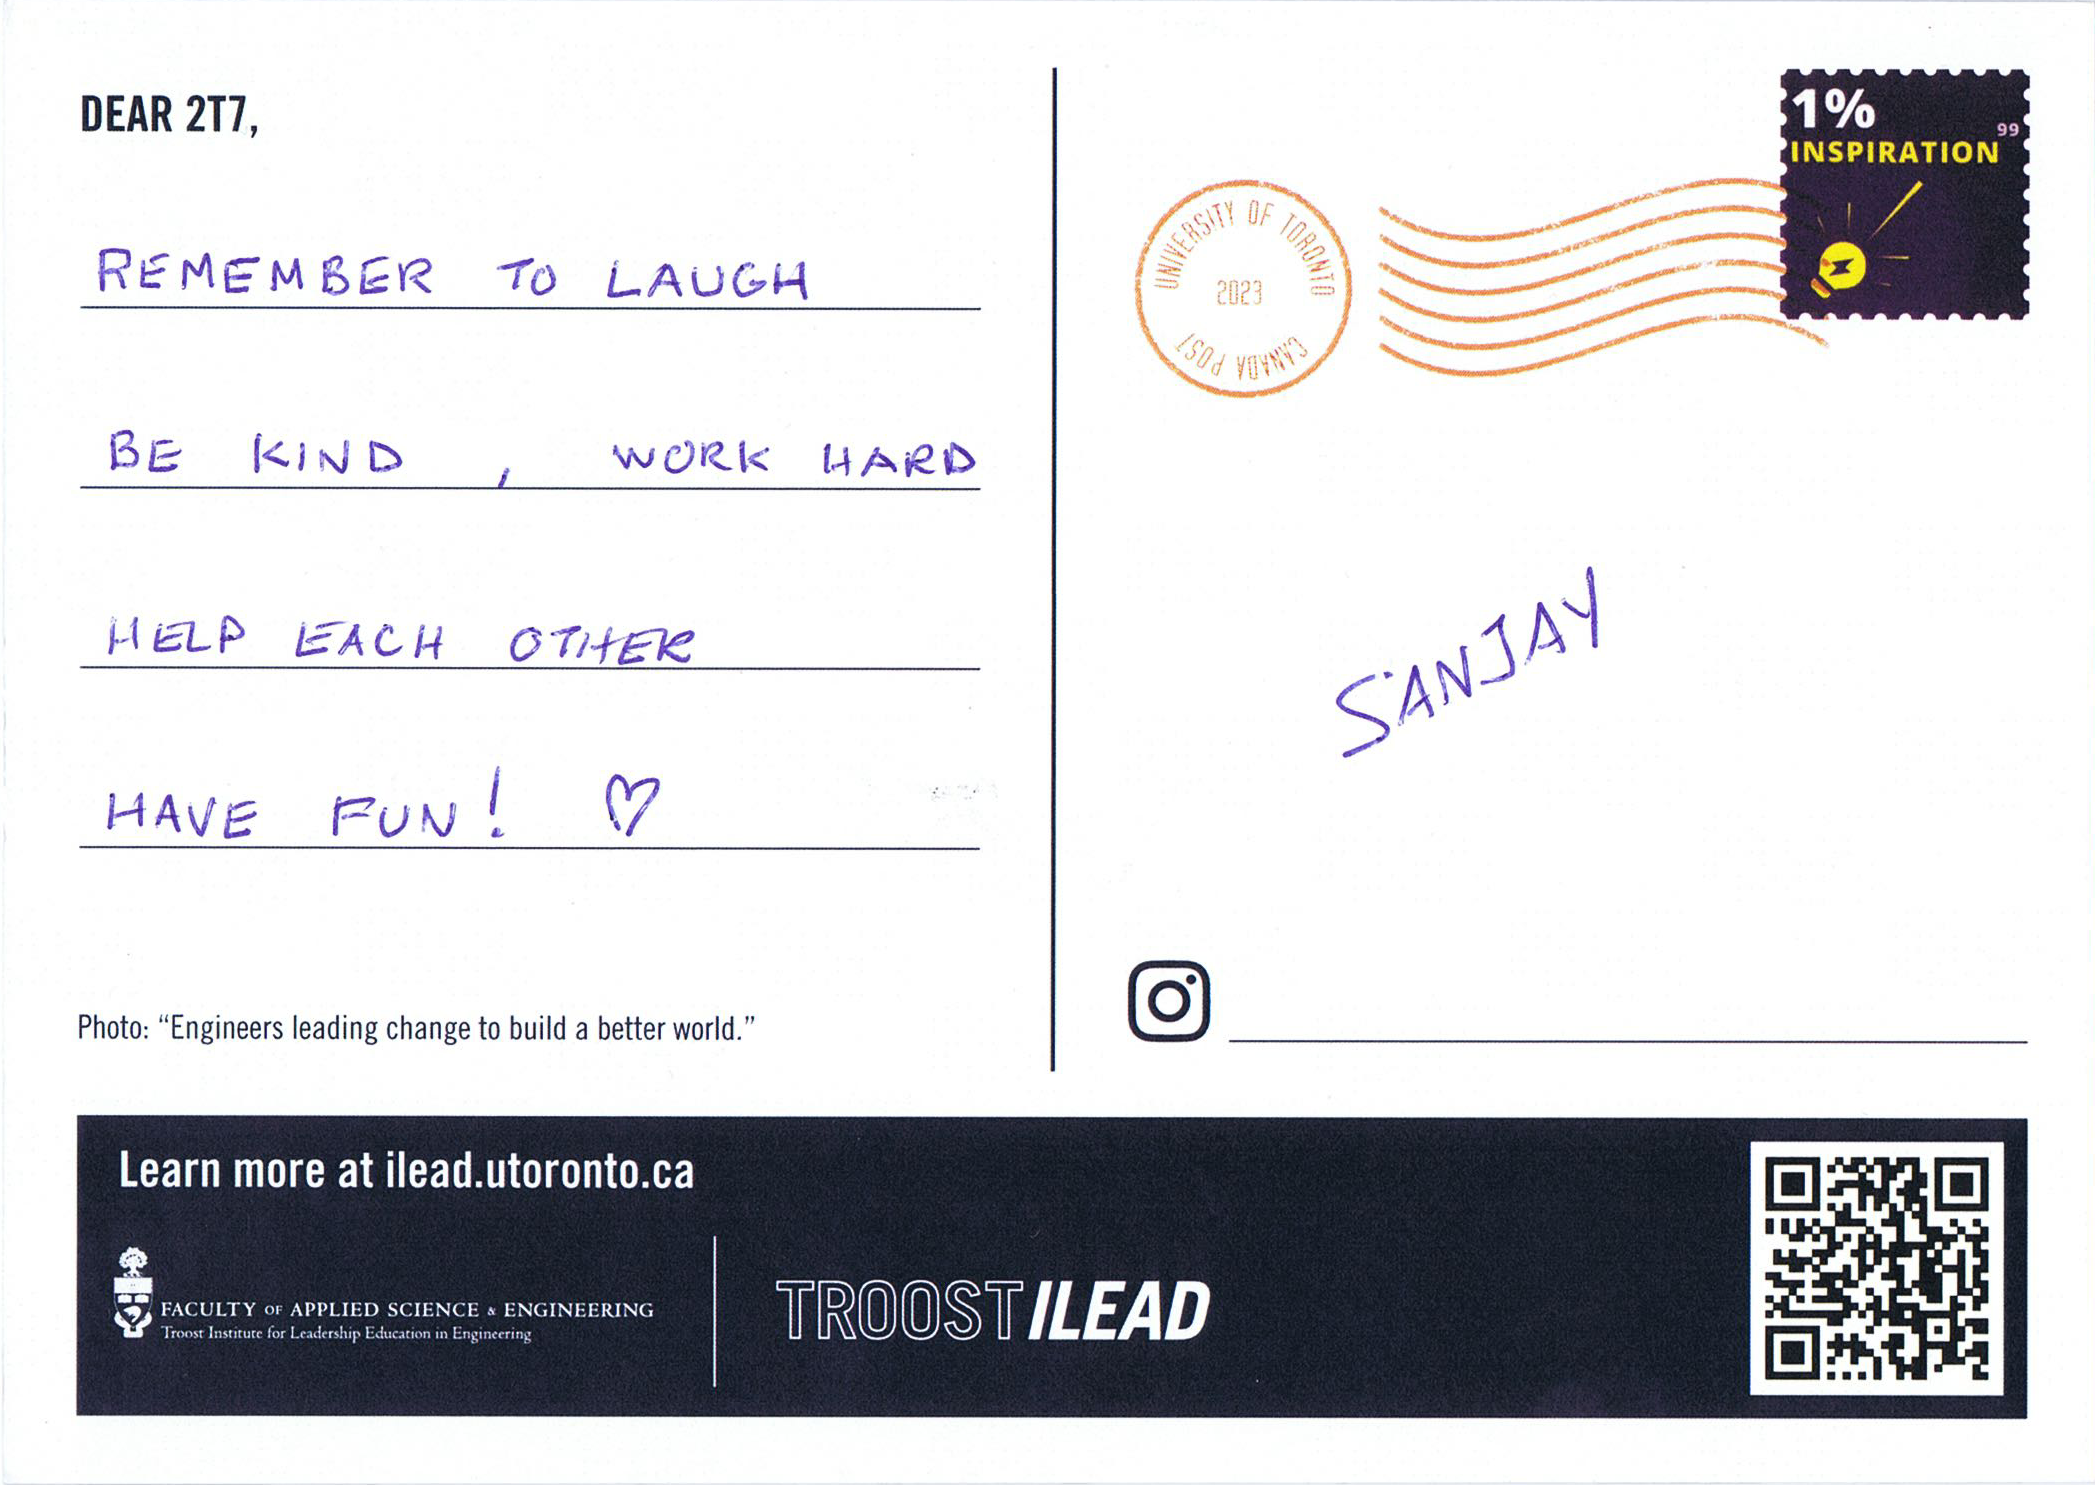 DEAR 2T7,
REMEMBER TO LAUGH
BE KIND , WORK HARD
HELP EACH OTHER
HAVE FUN! ♡
Photo: “Engineers leading change to build a better world.”
1%
99
INSPIRATION
UNIVERSITY OF TORONTO
2023
CANADA POST
SANJAY
Learn more at ilead.utoronto.ca
FACULTY OF APPLIED SCIENCE & ENGINEERING
Troost Institute for Leadership Education in Engineering
TROOST ILEAD